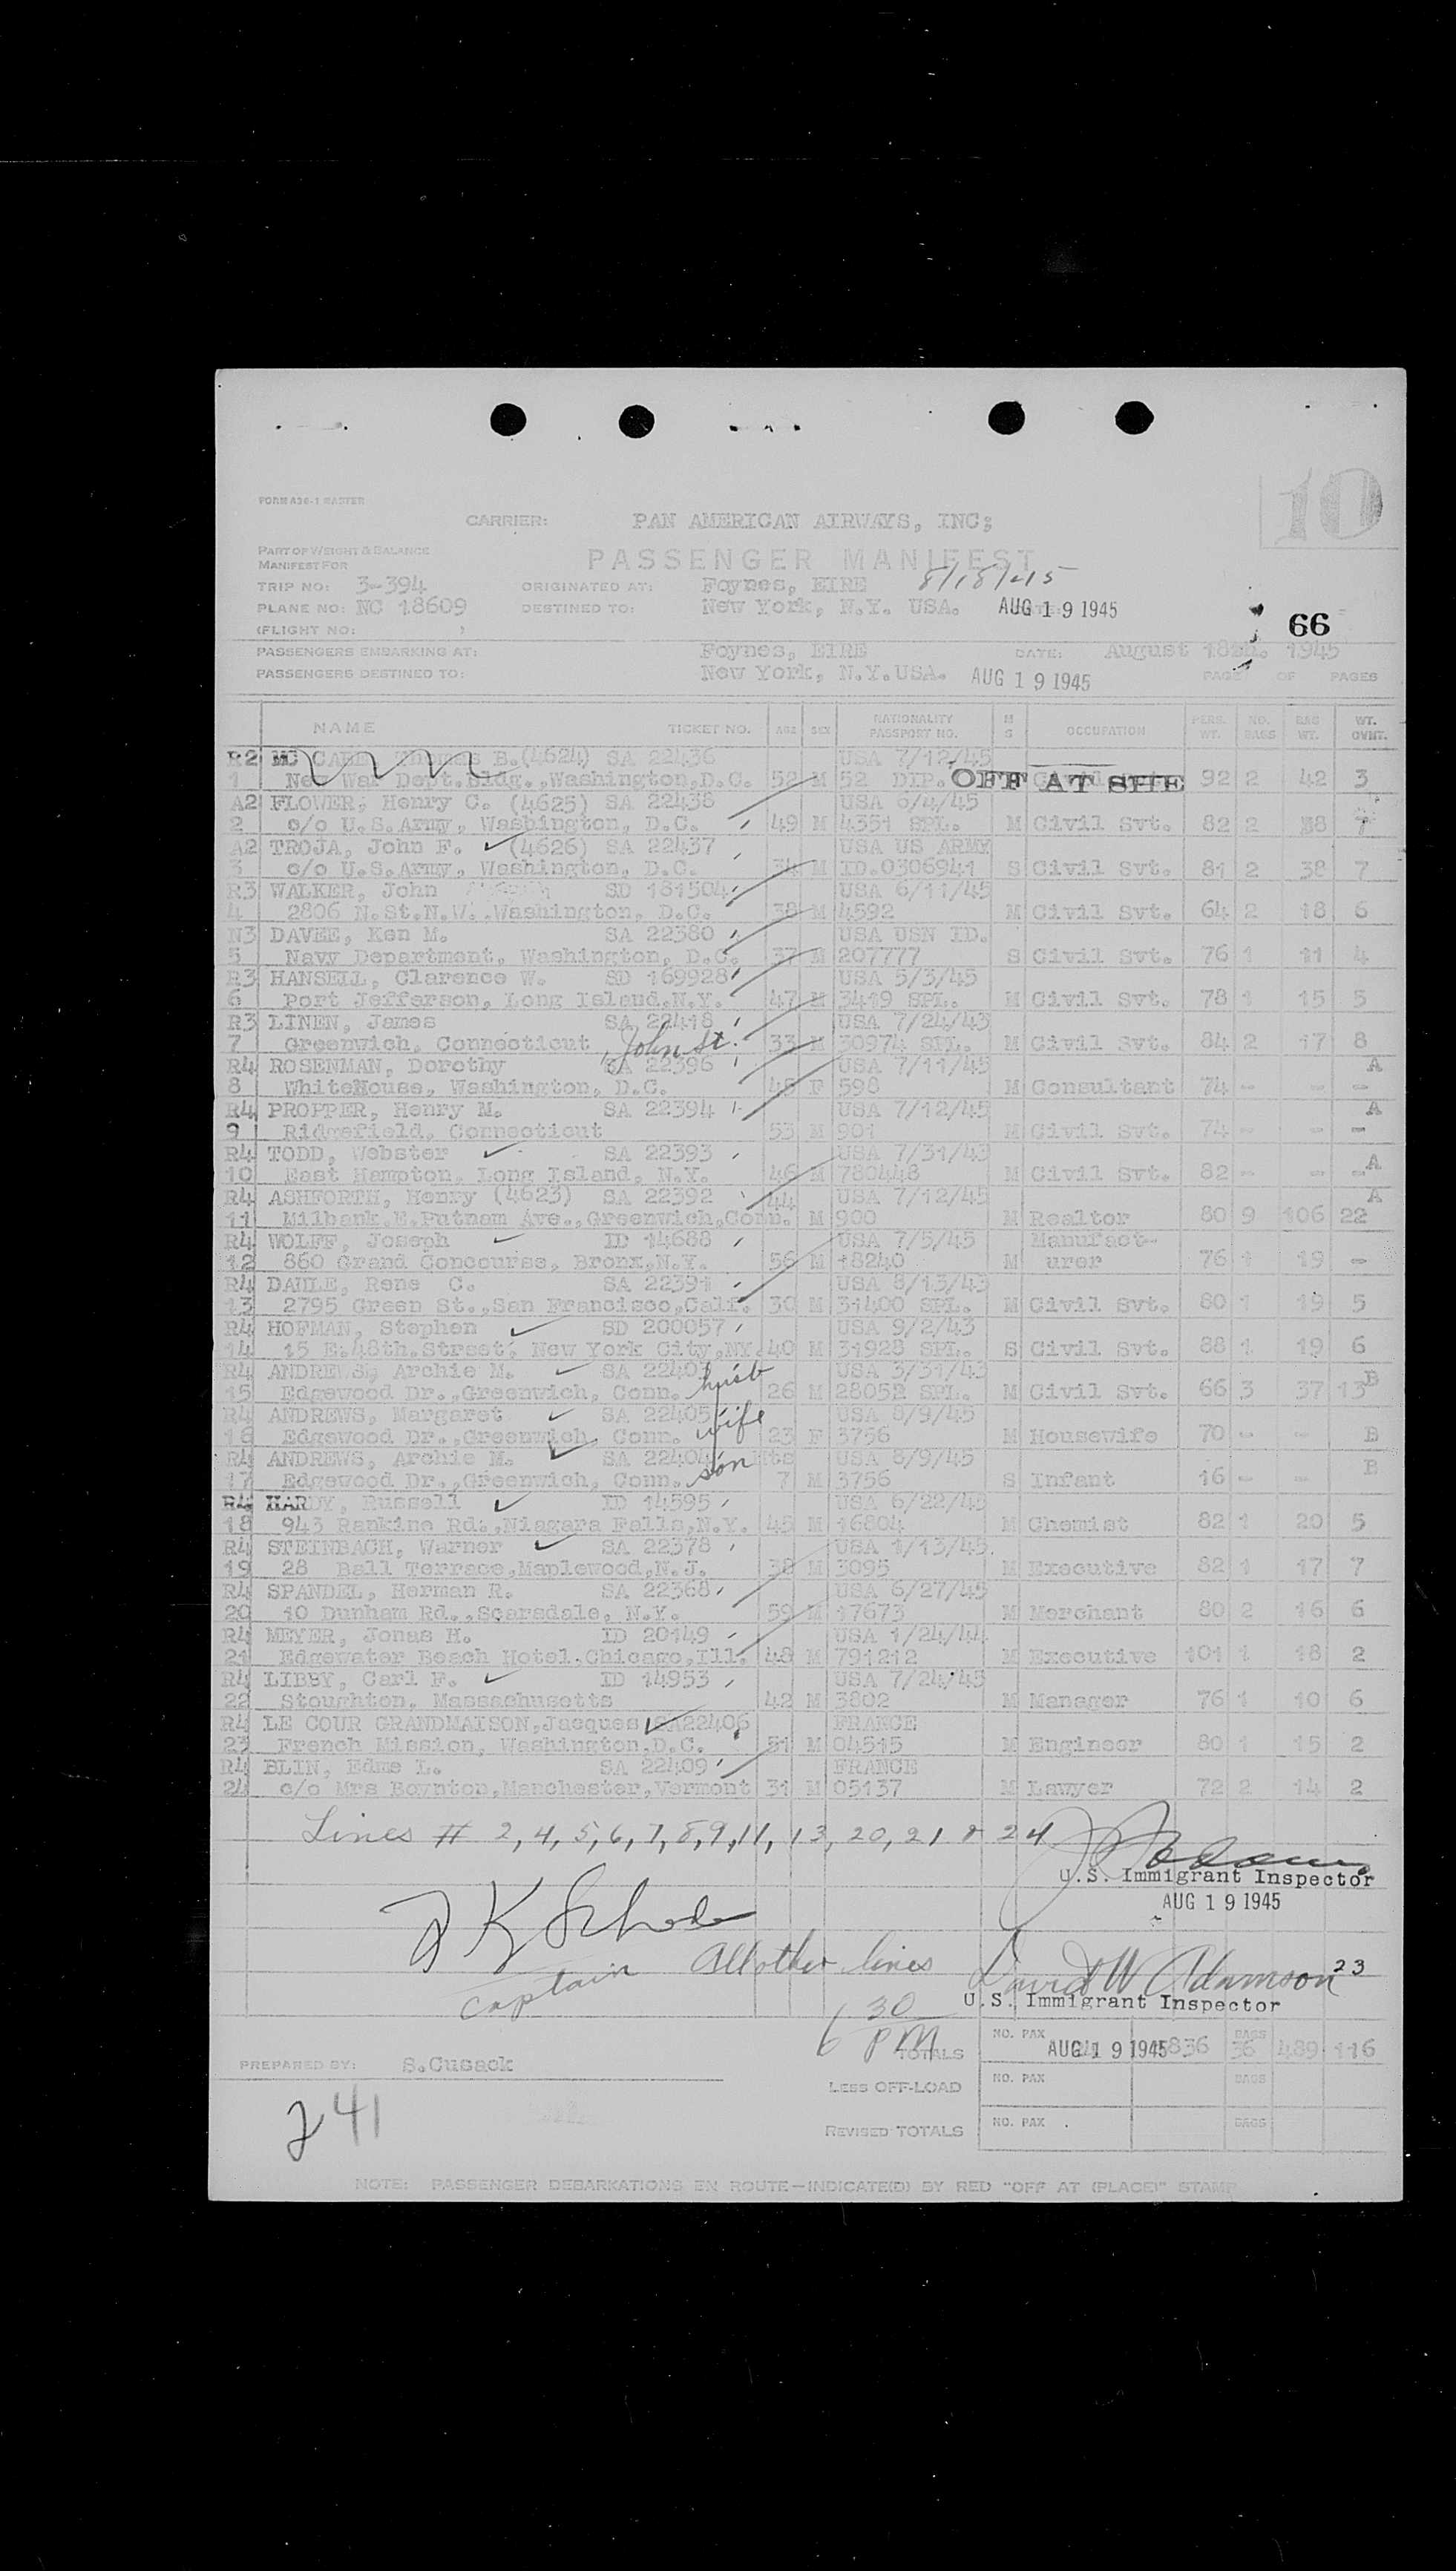 10
FORM A36-1 MASTER
CARRIER: PAN AMERICAN AIRWAYS, INC;
PART OF WEIGHT & BALANCE
MANIFEST FOR
PASSENGER MANIFEST
TRIP NO: 3-394 ORIGINATED AT: Foynes, EIRE 8/18/45
PLANE NO: NC 18609 DESTINED TO: New York, N.Y. USA. AUG 19 1945
(FLIGHT NO: ) 66
PASSENGERS EMBARKING AT: Foynes, EIRE DATE: August 18th. 1945
PASSENGERS DESTINED TO: New York, N.Y.USA. AUG 19 1945 PAGE OF PAGES
NAME TICKET NO. AGE SEX NATIONALITY PASSPORT NO. M S OCCUPATION PERS. WT. NO. BAGS BAG WT. WT. OVNT.
R2 MC CABE Thomas B.(4624) SA 22436 USA 7/12/45
1 New War Dept.Bldg.,Washington,D.C. 52 M 52 DIP. OFF AT SHE 92 2 42 3
A2 FLOWER, Henry C. (4625) SA 22438 USA 6/4/45
2 c/o U.S.Army, Washington, D.C. 49 M 4351 SPL. M Civil Svt. 82 2 38 7
A2 TROJA, John F. (4626) SA 22437 USA US ARMY
3 c/o U.S.Army, Washington, D.C. 34 M ID.0306941 S Civil Svt. 81 2 38 7
R3 WALKER, John SD 181504 USA 6/11/45
4 2806 N.St.N.W.,Washington, D.C. 38 M 4592 M Civil Svt. 64 2 18 6
N3 DAVEE, Ken M. SA 22380 USA USN ID.
5 Navy Department, Washington, D.C. 37 M 207777 S Civil Svt. 76 1 11 4
R3 HANSELL, Clarence W. SD 169928 USA 5/3/45
6 Port Jefferson, Long Island,N.Y. 47 M 3419 SPL. M Civil Svt. 78 1 15 5
R3 LINEN, James SA 22418 USA 7/24/43
7 Greenwich, Connecticut, John St. 33 M 30974 SPL. M Civil Svt. 84 2 17 8
R4 ROSENMAN, Dorothy SA 22396 USA 7/11/45 A
8 WhiteHouse, Washington, D.C. 45 F 598 M Consultant 74 - - -
R4 PROPPER, Henry M. SA 22394 USA 7/12/45 A
9 Ridgefield, Connecticut 53 M 901 M Civil Svt. 74 - - -
R4 TODD, Webster SA 22393 USA 7/31/43 A
10 East Hampton, Long Island, N.Y. 46 M 780448 M Civil Svt. 82 - - -
R4 ASHFORTH, Henry (4623) SA 22392 44 USA 7/12/45 A
11 Milbank.E.Putnam Ave.,Greenwich,Conn. M 900 M Realtor 80 9 106 22
R4 WOLFF, Joseph ID 14688 USA 7/5/45 Manufact-
12 860 Grand Concourse, Bronx,N.Y. 56 M 18240 M urer 76 1 19 -
R4 DAULE, Rene C. SA 22391 USA 8/13/43
13 2795 Green St.,San Francisco,Calif. 30 M 31400 SPL. M Civil Svt. 80 1 19 5
R4 HOFMAN, Stephen SD 200057 USA 9/2/43
14 15 E.48th.Street, New York City,NY. 40 M 31928 SPL. S Civil Svt. 88 1 19 6
R4 ANDREWS, Archie M. SA 22403 husb USA 3/31/43
15 Edgewood Dr.,Greenwich, Conn. 26 M 28052 SPL. M Civil Svt. 66 3 37 13 B
R4 ANDREWS, Margaret SA 22405 wife USA 8/9/45
16 Edgewood Dr.,Greenwich, Conn. 23 F 3756 M Housewife 70 - - B
R4 ANDREWS, Archie M. SA 22404 son mts USA 8/9/45 B
17 Edgewood Dr.,Greenwich, Conn. 7 M 3756 S Infant 16 - -
R4 HARDY, Russell ID 14595 USA 6/22/45
18 943 Rankine Rd.,Niagara Falls,N.Y. 45 M 16804 M Chemist 82 1 20 5
R4 STEINBACH, Warner SA 22378 USA 1/13/45.
19 28 Ball Terrace,Maplewood,N.J. 38 M 3095 M Executive 82 1 17 7
R4 SPANDEL, Herman R. SA 22368 USA 6/27/45
20 10 Dunham Rd.,Scarsdale, N.Y. 59 M 17673 M Merchant 80 2 16 6
R4 MEYER, Jonas H. ID 20149 USA 1/24/44
21 Edgewater Beach Hotel.Chicago,Ill. 48 M 791212 M Executive 101 1 18 2
R4 LIBBY, Carl F. ID 14953 USA 7/24/45
22 Stoughton, Massachusetts 42 M 3802 M Manager 76 1 10 6
R4 LE COUR GRANDMAISON,Jacques SA22406 FRANCE
23 French Mission, Washington.D.C. 51 M 04515 M Engineer 80 1 15 2
R4 BLIN, Edme L. SA 22409 FRANCE
24 c/o Mrs Boynton,Manchester,Vermont 31 M 05137 M Lawyer 72 2 14 2
Lines # 2,4,5,6,7,8,9,11,13,20,21 & 24
U.S. Immigrant Inspector
AUG 19 1945
captain All other lines David W Adamson 23
U.S. Immigrant Inspector
6 30 PM
TOTALS NO. PAX AUG 19 1945 1836 BAGS 36 489 116
PREPARED BY: S.Cusack
LESS OFF-LOAD NO. PAX BAGS
241
REVISED TOTALS NO. PAX BAGS
NOTE: PASSENGER DEBARKATIONS EN ROUTE—INDICATE(D) BY RED "OFF AT (PLACE)" STAMP